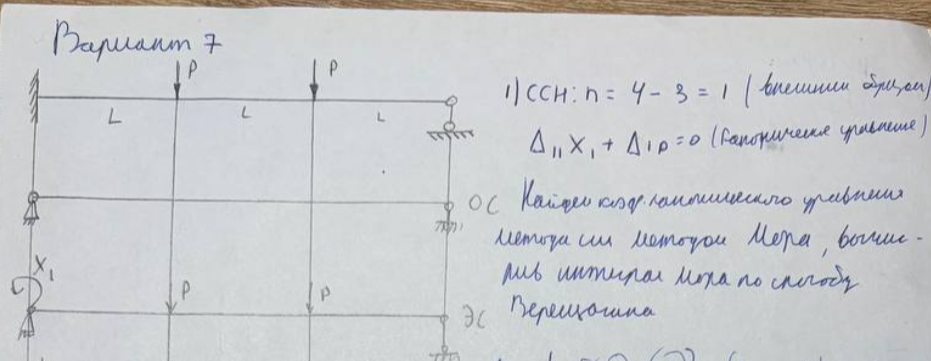 Вариант 7
P P
1) ССН: n = 4 - 3 = 1 ( внешним образом)
L L L
Δ₁₁ X₁ + Δ₁p = 0 (каноническое уравнение)
ОС Найдем коэф. канонического уравнения
метода сил методом Мора, вычис-
X₁
лив интеграл Мора по способу
P P
ЭС Верещагина